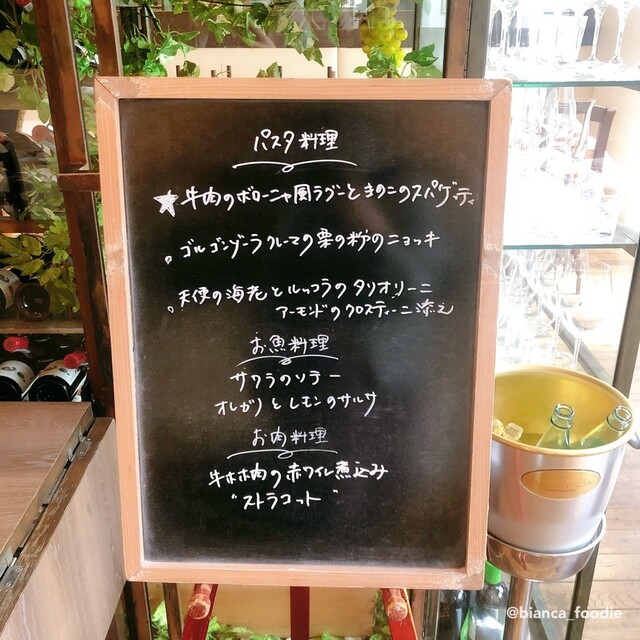 パスタ料理
★牛肉のボローニャ風ラグーときのこのスパゲッティ
。ゴルゴンゾーラクレーマの栗の粉のニョッキ
。天使の海老とルッコラのタリオリーニ
アーモンドのクロスティーニ添え
お魚料理
サワラのソテー
オレガノとレモンのサルサ
お肉料理
牛ホホ肉の赤ワイン煮込み
"ストラコット"
@bianca_foodie